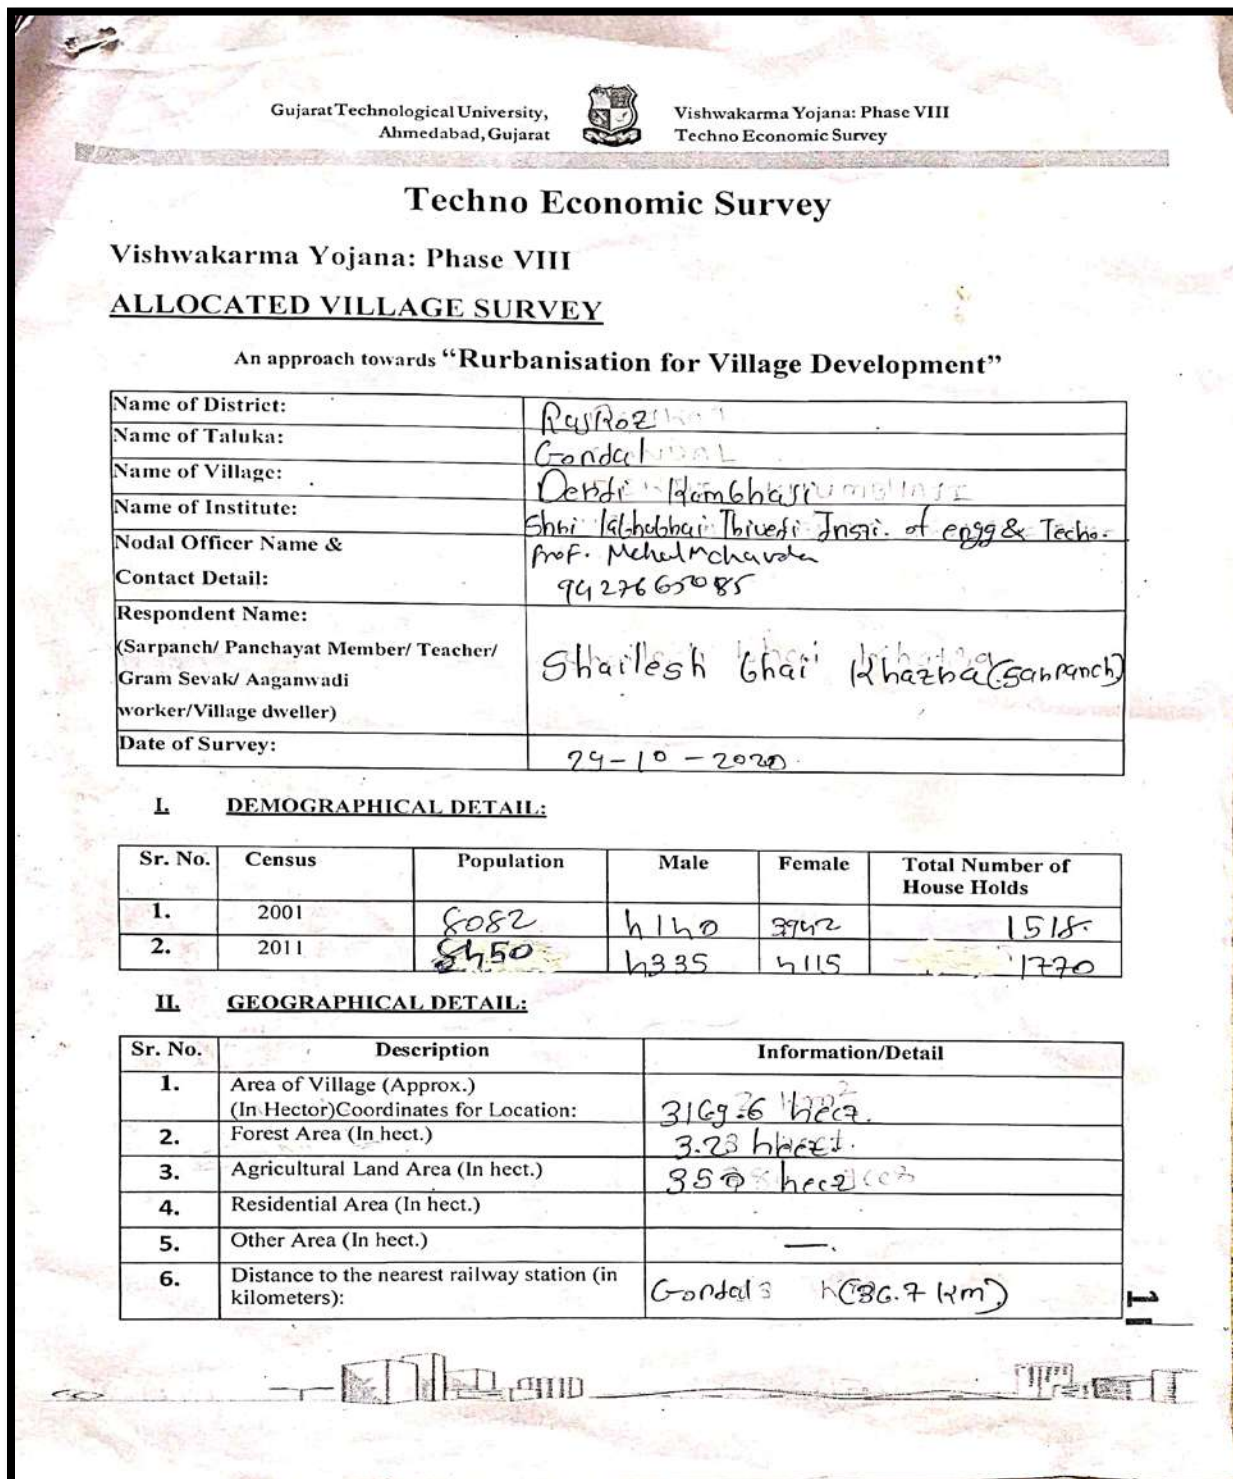 Gujarat Technological University,
Ahmedabad, Gujarat
Vishwakarma Yojana: Phase VIII
Techno Economic Survey
Techno Economic Survey
Vishwakarma Yojana: Phase VIII
ALLOCATED VILLAGE SURVEY
An approach towards “Rurbanisation for Village Development”
Name of District:
Name of Taluka: Gondal
Name of Village: Derdi
Name of Institute: Shri of engg & Techo.
Nodal Officer Name & Prof.
Contact Detail:
Respondent Name:
(Sarpanch/ Panchayat Member/ Teacher/
Gram Sevak/ Aaganwadi
worker/Village dweller)
Shailesh bhai (Sarpanch)
Date of Survey: 24-10-2020
I. DEMOGRAPHICAL DETAIL:
Sr. No. Census Population Male Female Total Number of
House Holds
1. 2001 8082 4140 3942 1518
2. 2011 8450 4335 4115 1770
II. GEOGRAPHICAL DETAIL:
Sr. No. Description Information/Detail
1. Area of Village (Approx.)
(In Hector)Coordinates for Location: 3169.6 hect.
2. Forest Area (In hect.) 3.23 hect.
3. Agricultural Land Area (In hect.)
4. Residential Area (In hect.)
5. Other Area (In hect.) —.
6. Distance to the nearest railway station (in
kilometers): Gondal (36.7 km)
1